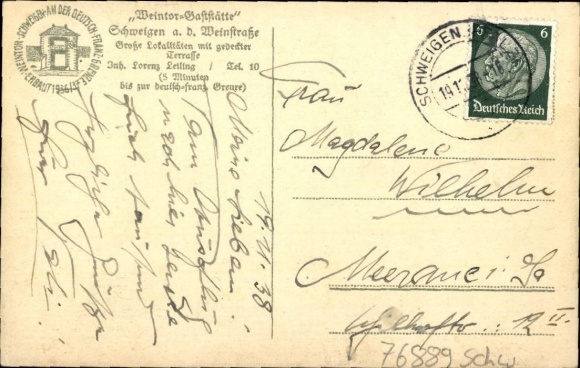 WEINTOR-SCHWEIGEN-AN DER DEUTSCH-FRANZ.GRENZE
ERBAUT 1936/37
„Weintor-Gaststätte"
Schweigen a. d. Weinstraße
Große Lokalitäten mit gedeckter
Terrasse
Inh. Lorenz Leiling / Tel. 10
(5 Minuten
bis zur deutsch-franz. Grenze)
SCHWEIGEN
19.1
5 6
Deutsches Reich
19.11.38
Meine Lieben!
am Ausflug
nach hier sende
Herzliche Grüße
Frau
Magdalene
Wilhelm
Meerane i. Sa
12 II.
76889 Schw